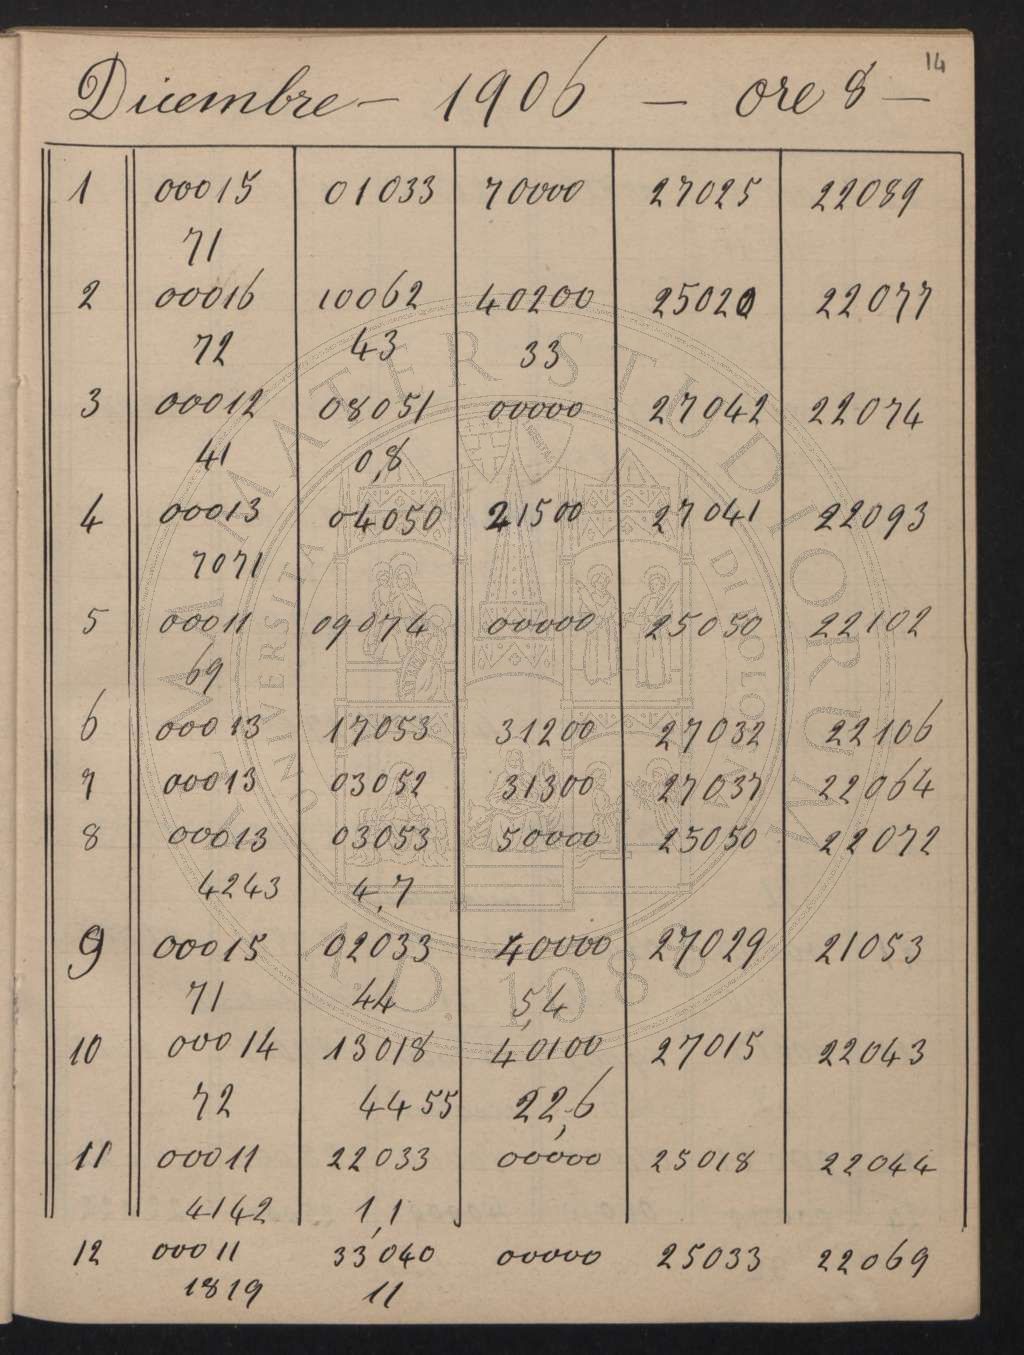 14
Dicembre - 1906 - ore 8 -
1 00015 01033 70000 27025 22089
71
2 00016 10062 40200 25020 22077
72 43 33
3 00012 08051 00000 27042 22074
41 0,8
4 00013 04050 21500 27041 22093
7071
5 00011 09074 00000 25050 22102
69
6 00013 17053 31200 27032 22106
7 00013 03052 31300 27037 22064
8 00013 03053 50000 25050 22072
4243 4,7
9 00015 02033 40000 27029 21053
71 44 5,4
10 00014 13018 40100 27015 22043
72 4455 22,6
11 00011 22033 00000 25018 22044
4142 1,1
12 00011 33040 00000 25033 22069
1819 11
ALMA MATER STUDIORUM
UNIVERSITA DI BOLOGNA
A.D. 1088